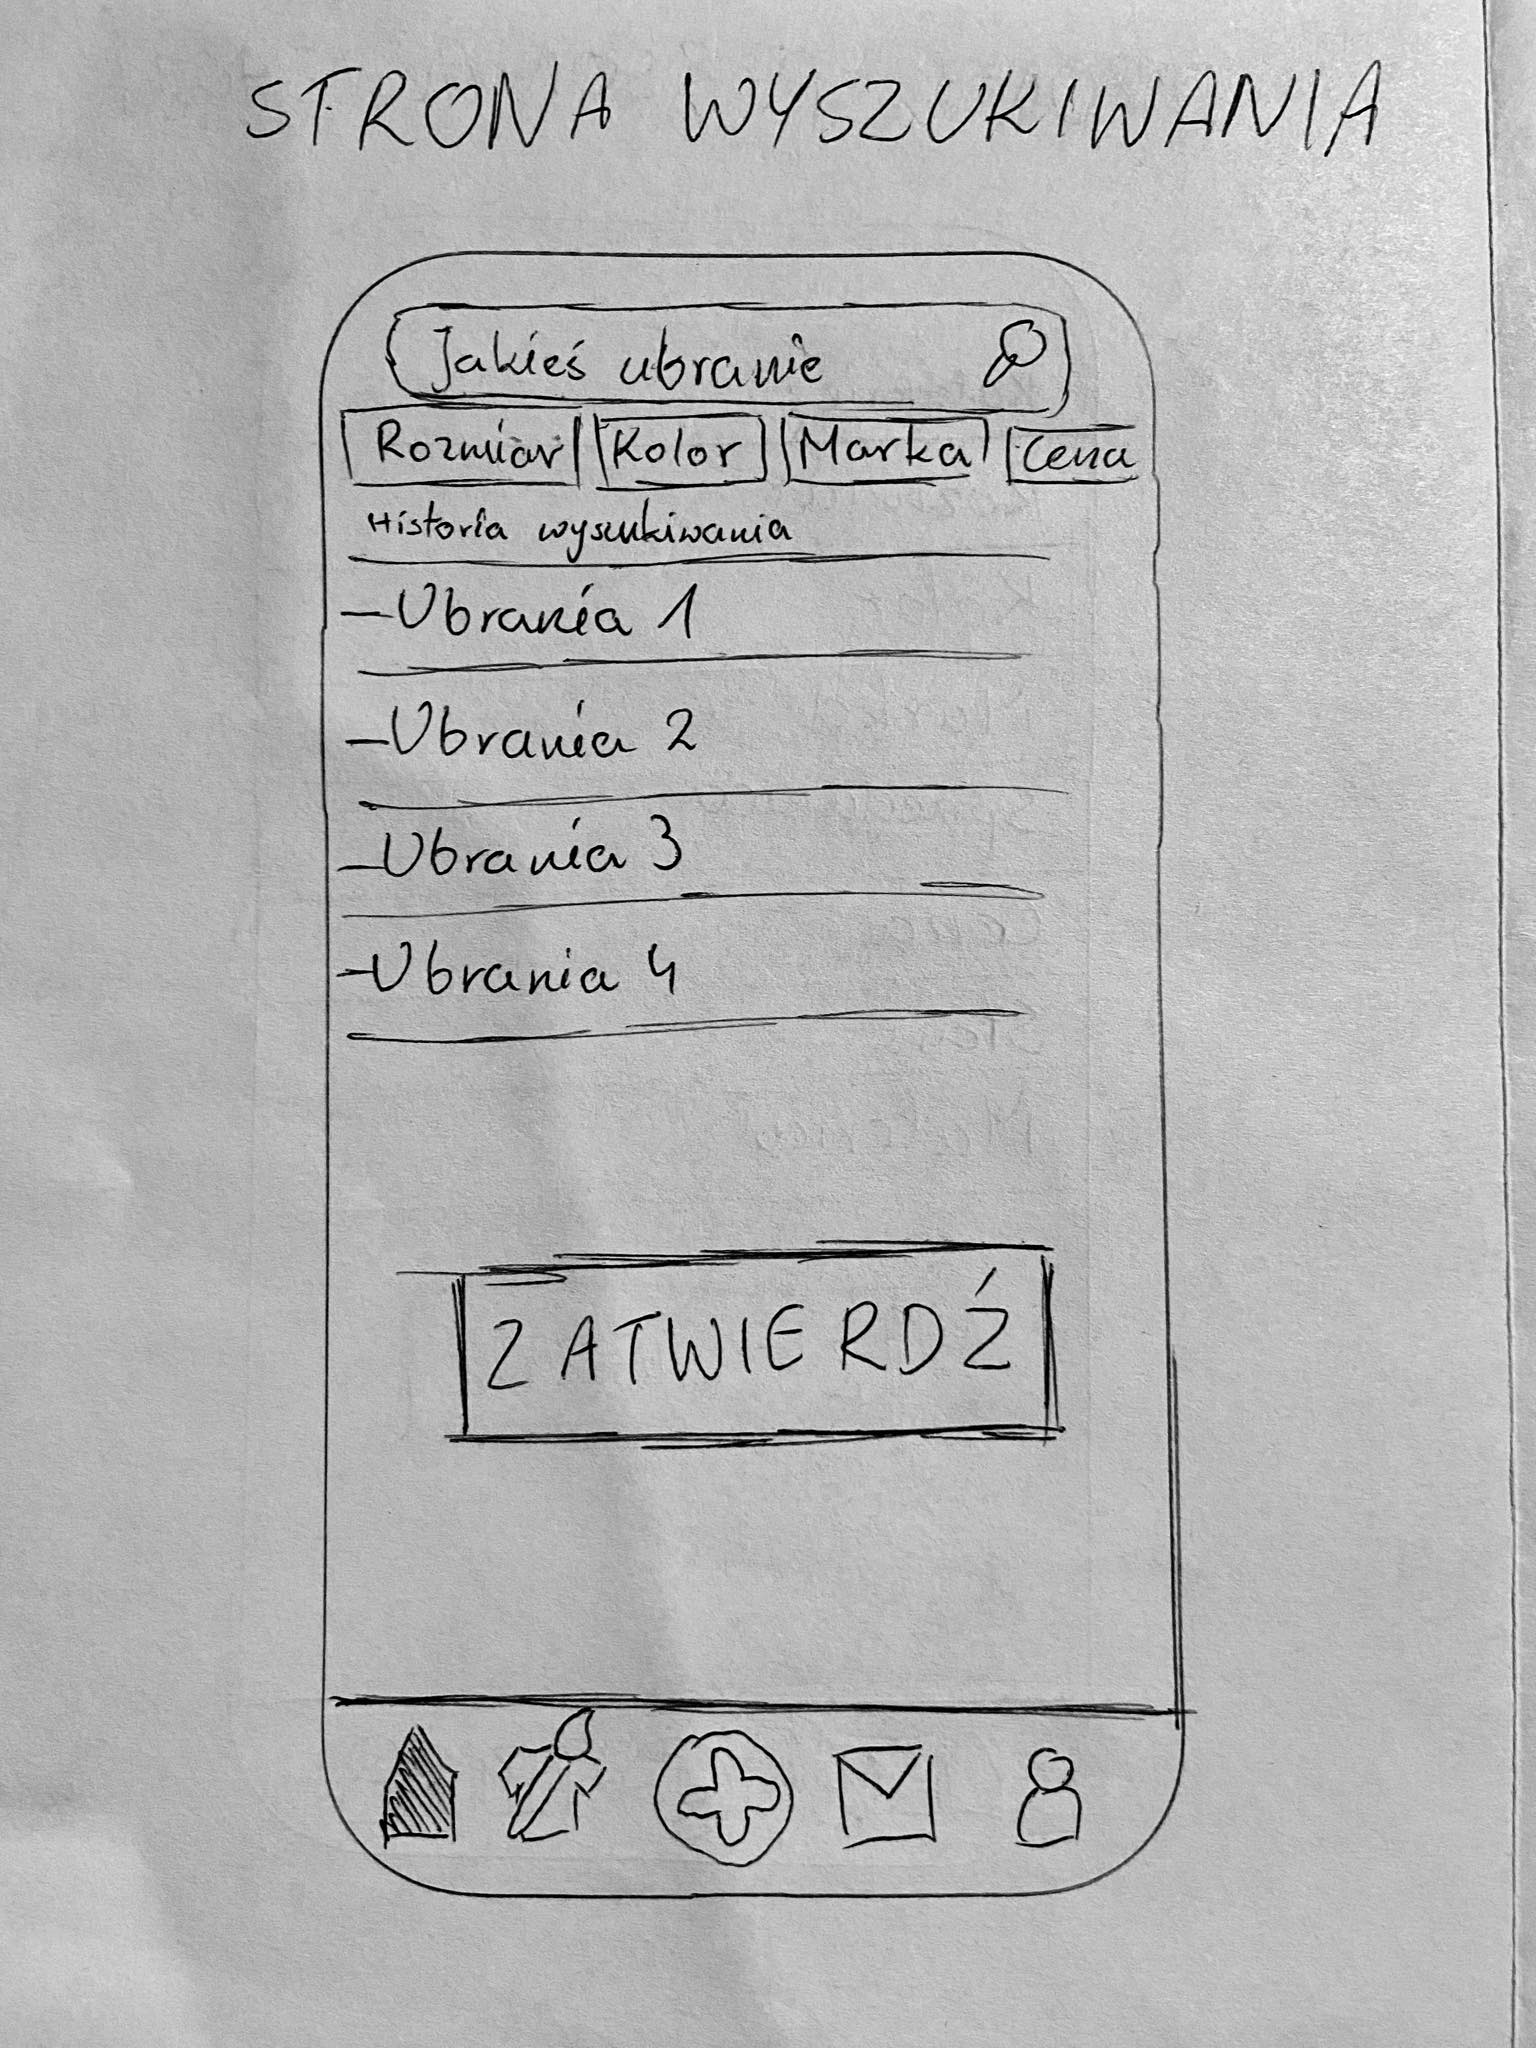 STRONA WYSZUKIWANIA
Jakieś ubranie
Rozmiar Kolor Marka Cena
Historia wyszukiwania
-Ubrania 1
-Ubrania 2
-Ubrania 3
-Ubrania 4
ZATWIERDŹ